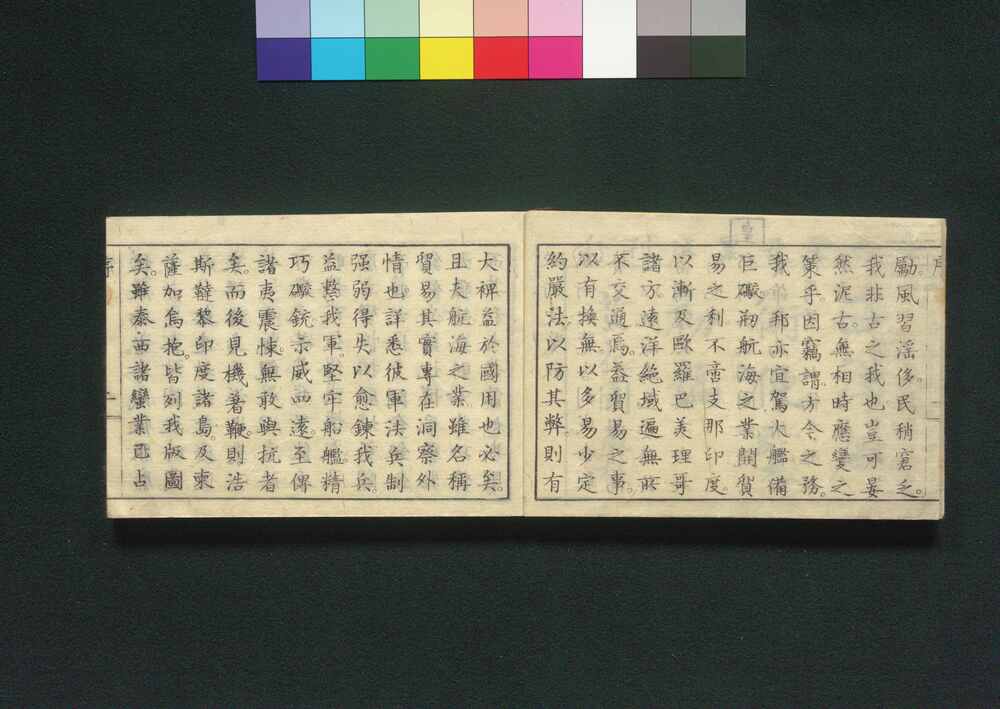 勵風習滛侈。民稍窘乏。
我非古之我也豈可晏
然泥古。無相時應變之
策乎因竊謂。方今之務。
我邦亦宜駕火艦備
巨礮剏航海之業開貿
易之利不啻支那印度
以漸及歐羅巴美理哥
諸方。遠洋絶域遍無所
不交通焉。益貿易之事。
以有換無。以多易少定
約嚴法。以防其弊。則有
大裨益於國用也必矣。
且夫航海之業雖名稱
貿易其實專在洞察外
情也詳悉彼軍法兵制
强弱得失以愈鍊我兵。
益整我軍。堅牢船艦精
巧礮銃示威西遠。至俾
諸夷震悚。無敢與抗者
矣。而後見機著鞭。則浩
斯韃黎印度諸島。及柬
薩加烏抱。皆列我版圖
矣。雖泰西諸蠻業已占